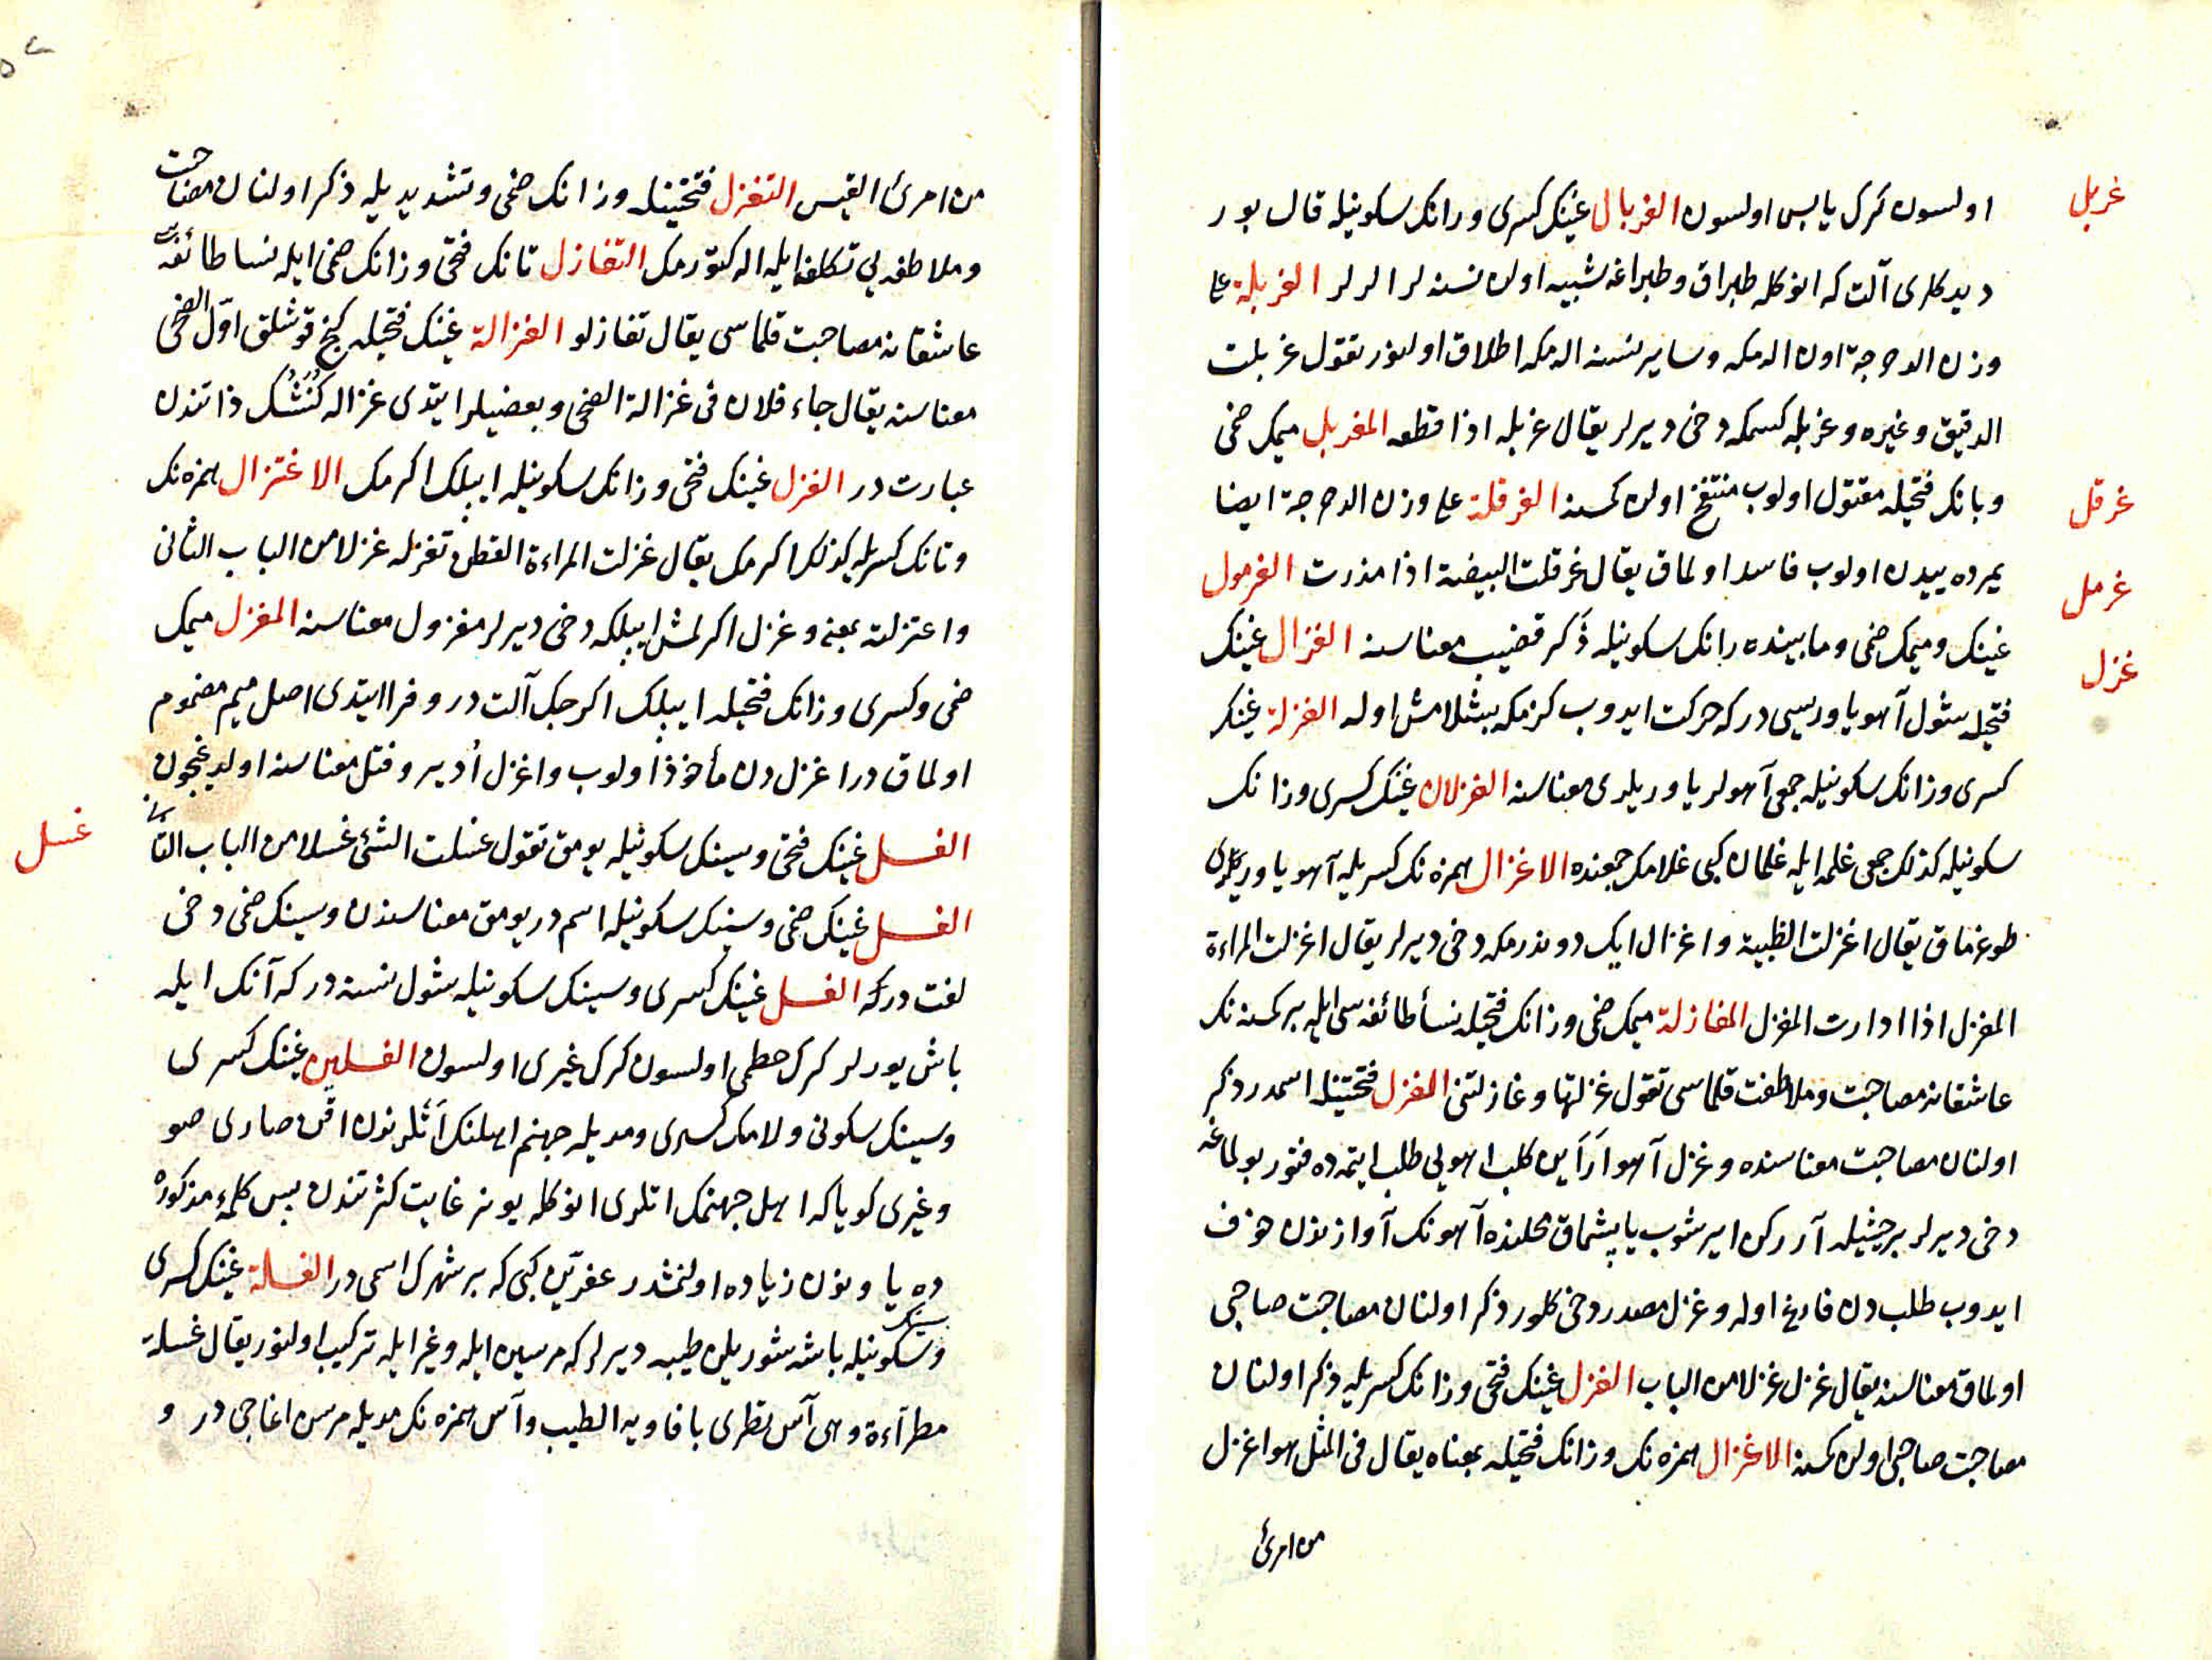 غربل
اولسون كرك يابس اولسون الغربال غينك كسرى و رانك سكونيله قالبور
ديدكلرى آلت كه انوكله طپراق و طپراغه شبيه اولن نسنه لر الرلر الغربلة على
وزن الدحرجة اون المكه وساير نسنه المكه اطلاق اولنور تقول غربلت
الدقيق وغيره وغربله كسمكه دخى ديرلر يقال غربله اذا قطعه المغربل ميمك ضمى
غرقل
وبانك فتحيله مقتول اولوب منتفخ اولن كمسنه الغرقلة على وزن الدحرجة ايضا
غرمل
يمرده ييدن اولوب فاسد اولماق يقال غرقلت البيضة اذا مذرت الغرمول
غزل
غينك وميمك ضمى ومابينده رانك سكونيله ذكر قضيب معناسنه الغزال غينك
فتحيله شول آهو ياوريسى دركه حركت ايدوب كزمكه بشلامش اوله الغزلة غينك
كسرى وزانك سكونيله جمعى آهولر ياوريلرى معناسنه الغزلان غينك كسرى وزانك
سكونيله كذلك جمعى غلمه ايله غلمان كبى غلامك جمعنده الاغزال همزه نك كسريله آهو ياوريلرى
طوغماق يقال اغزلت الظبية واغزال ايك دوندرمكه دخى ديرلر يقال اغزلت المراءة
المغزل اذا ادارت المغزل المغازلة ميمك ضمى وزانك فتحيله نسأ طائفه سى ايله بر كمسنه نك
عاشقانه مصاحبت وملاطفت قلماسى تقول غزلتها وغازلتنى الغزل فتحتينله اسمدر ذكر
اولنان مصاحبت معناسنده وغزل آهو آراين كلب اهويى طلب ايتمده فتور بولماغه
دخى ديرلر بر حيثيله آرركن ايرشوب ياپشماق محلنده آهونك آوازندن خوف
ايدوب طلب دن فارغ اوله وغزل مصدر دخى كلور ذكر اولنان مصاحبت صاحبى
اولماق معناسنه يقال غزل غزلا من الباب الغزل غينك فتحى وزانك كسريله ذكر اولنان
مصاحبت صاحبى اولن كمسنه الاغزال همزه نك وزانك فتحيله بمعناه يقال فى المثل هو اغزل
من امرئ
من امرئ القيس التغزل فتحتينله وزانك ضمى وتشديديله ذكر اولنان مصاحبت
وملاطفه يى تكلف ايله اله كتورمك التغازل تانك فتحى وزانك ضمى ايله نسا طائفه سى
عاشقانه مصاحبت قلماسى يقال تغازلوا الغزالة غينك فتحيله كج قوشلق اول الضحى
معناسنه يقال جاء فلان فى غزالة الضحى وبعضيلر ايتدى غزاله كنشك ذاتندن
عبارت در الغزل غينك فتحى وزانك سكونيله ايپلك اكرمك الاغتزال همزه نك
وتانك كسريله كذلك اكرمك يقال غزلت المراءة القطن تغزله غزلا من الباب الثانى
واغتزلته بمعنى وغزل اكرلمش ايپلكه دخى ديرلر مغزول معناسنه المغزل ميمك
ضمى وكسرى وزانك فتحيله ايپلك اكرجك آلت در وفرا ايتدى اصل ميم مضموم
اولماق در اغزل دن مأخوذ اولوب واغزل ادير وفتل معناسنه اولديغيچون
غسل
الغسل غينك فتحى وسينك سكونيله يومق تقول غسلت الشئ غسلا من الباب الثانى
الغسل غينك ضمى وسينك سكونيله اسم در يومق معناسندن وسينك ضمى دخى
لغت دركه الغسل غينك كسرى وسينك سكونيله شول نسنه دركه آنك ايله
باش يورلر كرك خطمى اولسون كرك غيرى اولسون الغسلين غينك كسرى
وسينك سكونى ولامك كسرى ومديله جهنم اهلنك اتلرندن اقن صارى صو
وغيرى كوياكه اهل جهنمك اتلرى انوكله يونر غايت كثرتندن پس كلمۀ مذكوره
ده يا ونون زياده اولنمشدر عفرين كبى كه بر شهرك اسمى در الغسلة غينك كسرى
وسينك سكونيله باشه شوريلن طيبه ديرلر كه مرسين ايله وغير ايله تركيب اولنور يقال غسلة
مطراءة وهى آس يطرى بافاويه الطيب وآس همزه نك مديله مرسن اغاجى در و